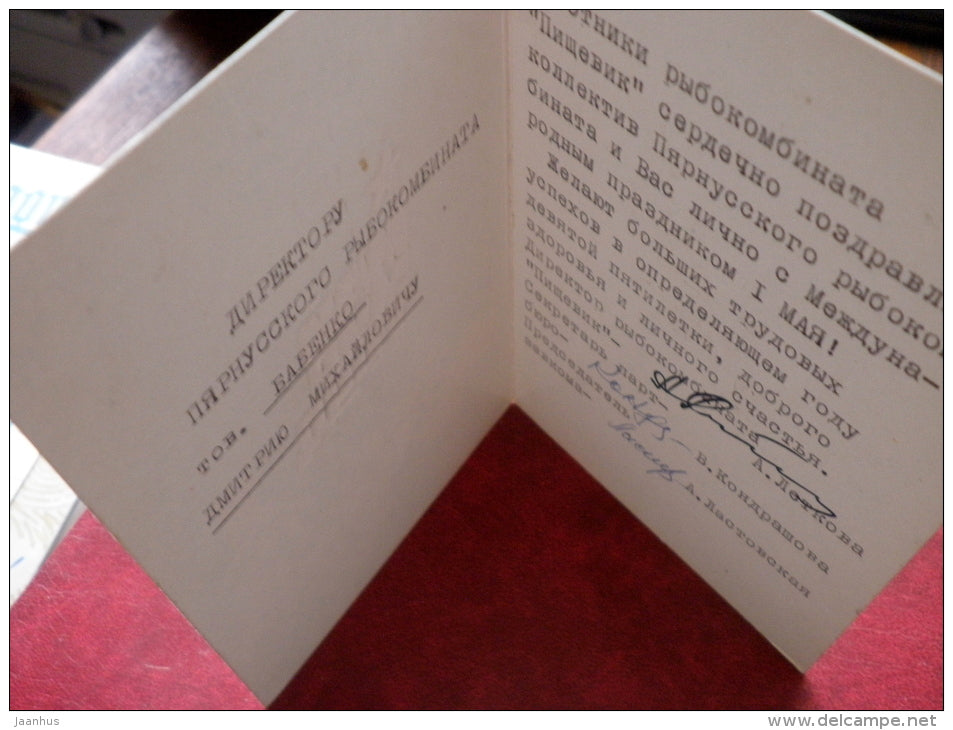 ДИРЕКТОРУ
ПЯРНУССКОГО РЫБОКОМБИНАТА
тов. БАБЕНКО
ДМИТРИЮ МИХАЙЛОВИЧУ
тники рыбокомбината
"Пищевик" сердечно поздравл
коллектив Пярнусского рыбоко
бината и Вас лично с Междуна-
родным праздником I МАЯ!
Желают больших трудовых
успехов в определяющем году
девятой пятилетки, доброго
здоровья и личного счастья.
Директор рыбокомбината
"Пищевик"- А.Леткова
Секретарь парт-
бюро- В.Кондрашова
Председатель
завкома- А.Ластовская
Jaanhus
www.delcampe.net